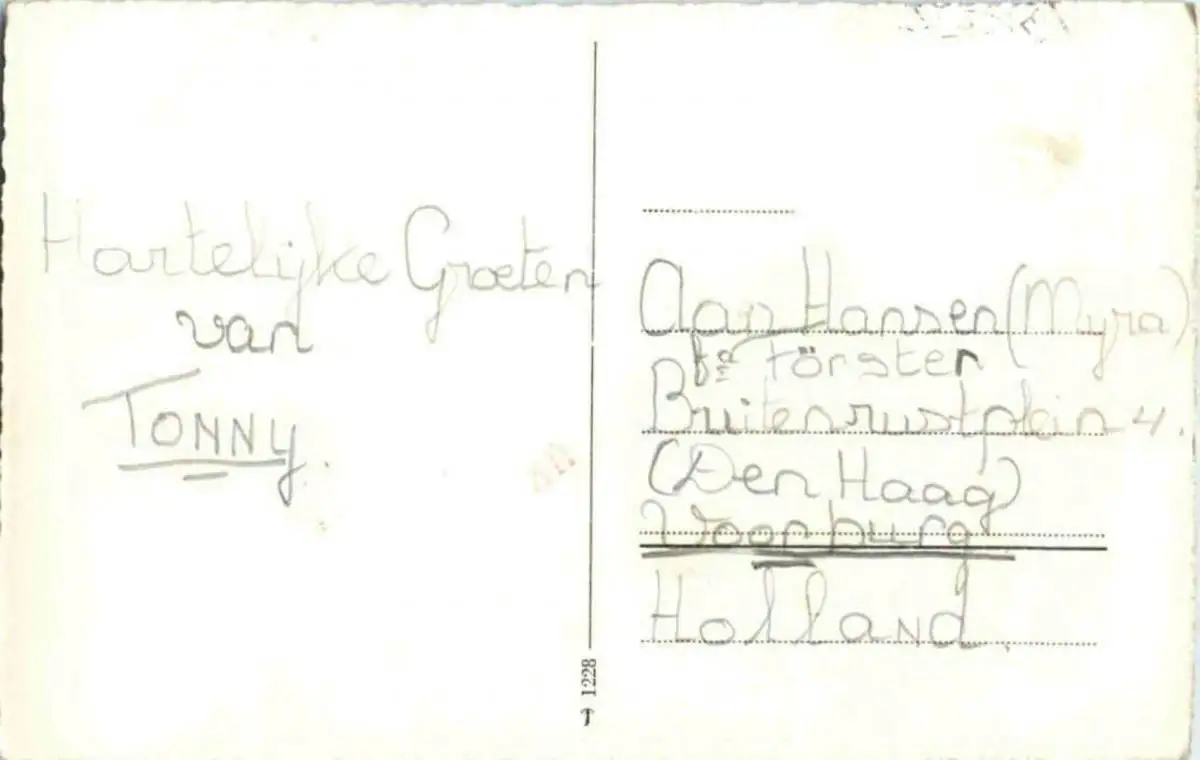 Hartelijke Groeten
van
TONNY.
Aan Hansen (Myra)
fa Förster
Buitenrustplein 4.
(Den Haag)
Voorburg
Holland.
1228